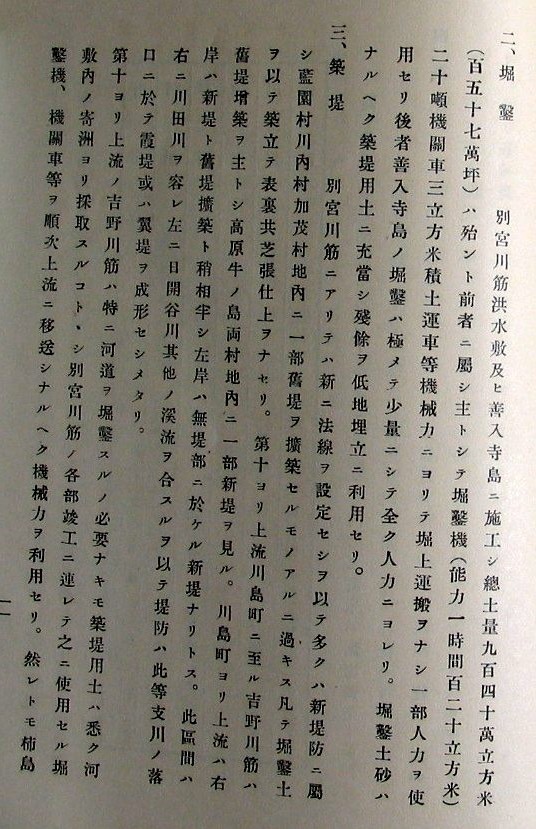 二、堀鑿　　別宮川筋洪水敷及ヒ善入寺島ニ施工シ總土量九百四十萬立方米
（百五十七萬坪）ハ殆ント前者ニ屬シ主トシテ堀鑿機（能力一時間百二十立方米）
二十噸機關車三立方米積土運車等機械力ニヨリテ堀上運搬ヲナシ一部人力ヲ使
用セリ後者善入寺島ノ堀鑿ハ極メテ少量ニシテ全ク人力ニヨレリ。堀鑿土砂ハ
ナルヘク築堤用土ニ充當シ殘餘ヲ低地埋立ニ利用セリ。
三、築堤　　別宮川筋ニアリテハ新ニ法線ヲ設定セシヲ以テ多クハ新堤防ニ屬
シ藍園村川內村加茂村地內ニ一部舊堤ヲ擴築セルモノアルニ過キス凡テ堀鑿土
ヲ以テ築立テ表裏共芝張仕上ヲナセリ。第十ヨリ上流川島町ニ至ル吉野川筋ハ
舊堤增築ヲ主トシ高原牛ノ島両村地內ニ一部新堤ヲ見ル。川島町ヨリ上流ハ右
岸ハ新堤ト舊堤擴築ト稍相半シ左岸ハ無堤部ニ於ケル新堤ナリトス。此區間ハ
右ニ川田川ヲ容レ左ニ日開谷川其他ノ溪流ヲ合スルヲ以テ堤防ハ此等支川ノ落
口ニ於テ霞堤或ハ翼堤ヲ成形セシメタリ。
第十ヨリ上流ノ吉野川筋ハ特ニ河道ヲ堀鑿スルノ必要ナキモ築堤用土ハ悉ク河
敷內ノ寄洲ヨリ採取スルコトヽシ別宮川筋ノ各部竣工ニ連レテ之ニ使用セル堀
鑿機、機關車等ヲ順次上流ニ移送シナルヘク機械力ヲ利用セリ。然レトモ柿島